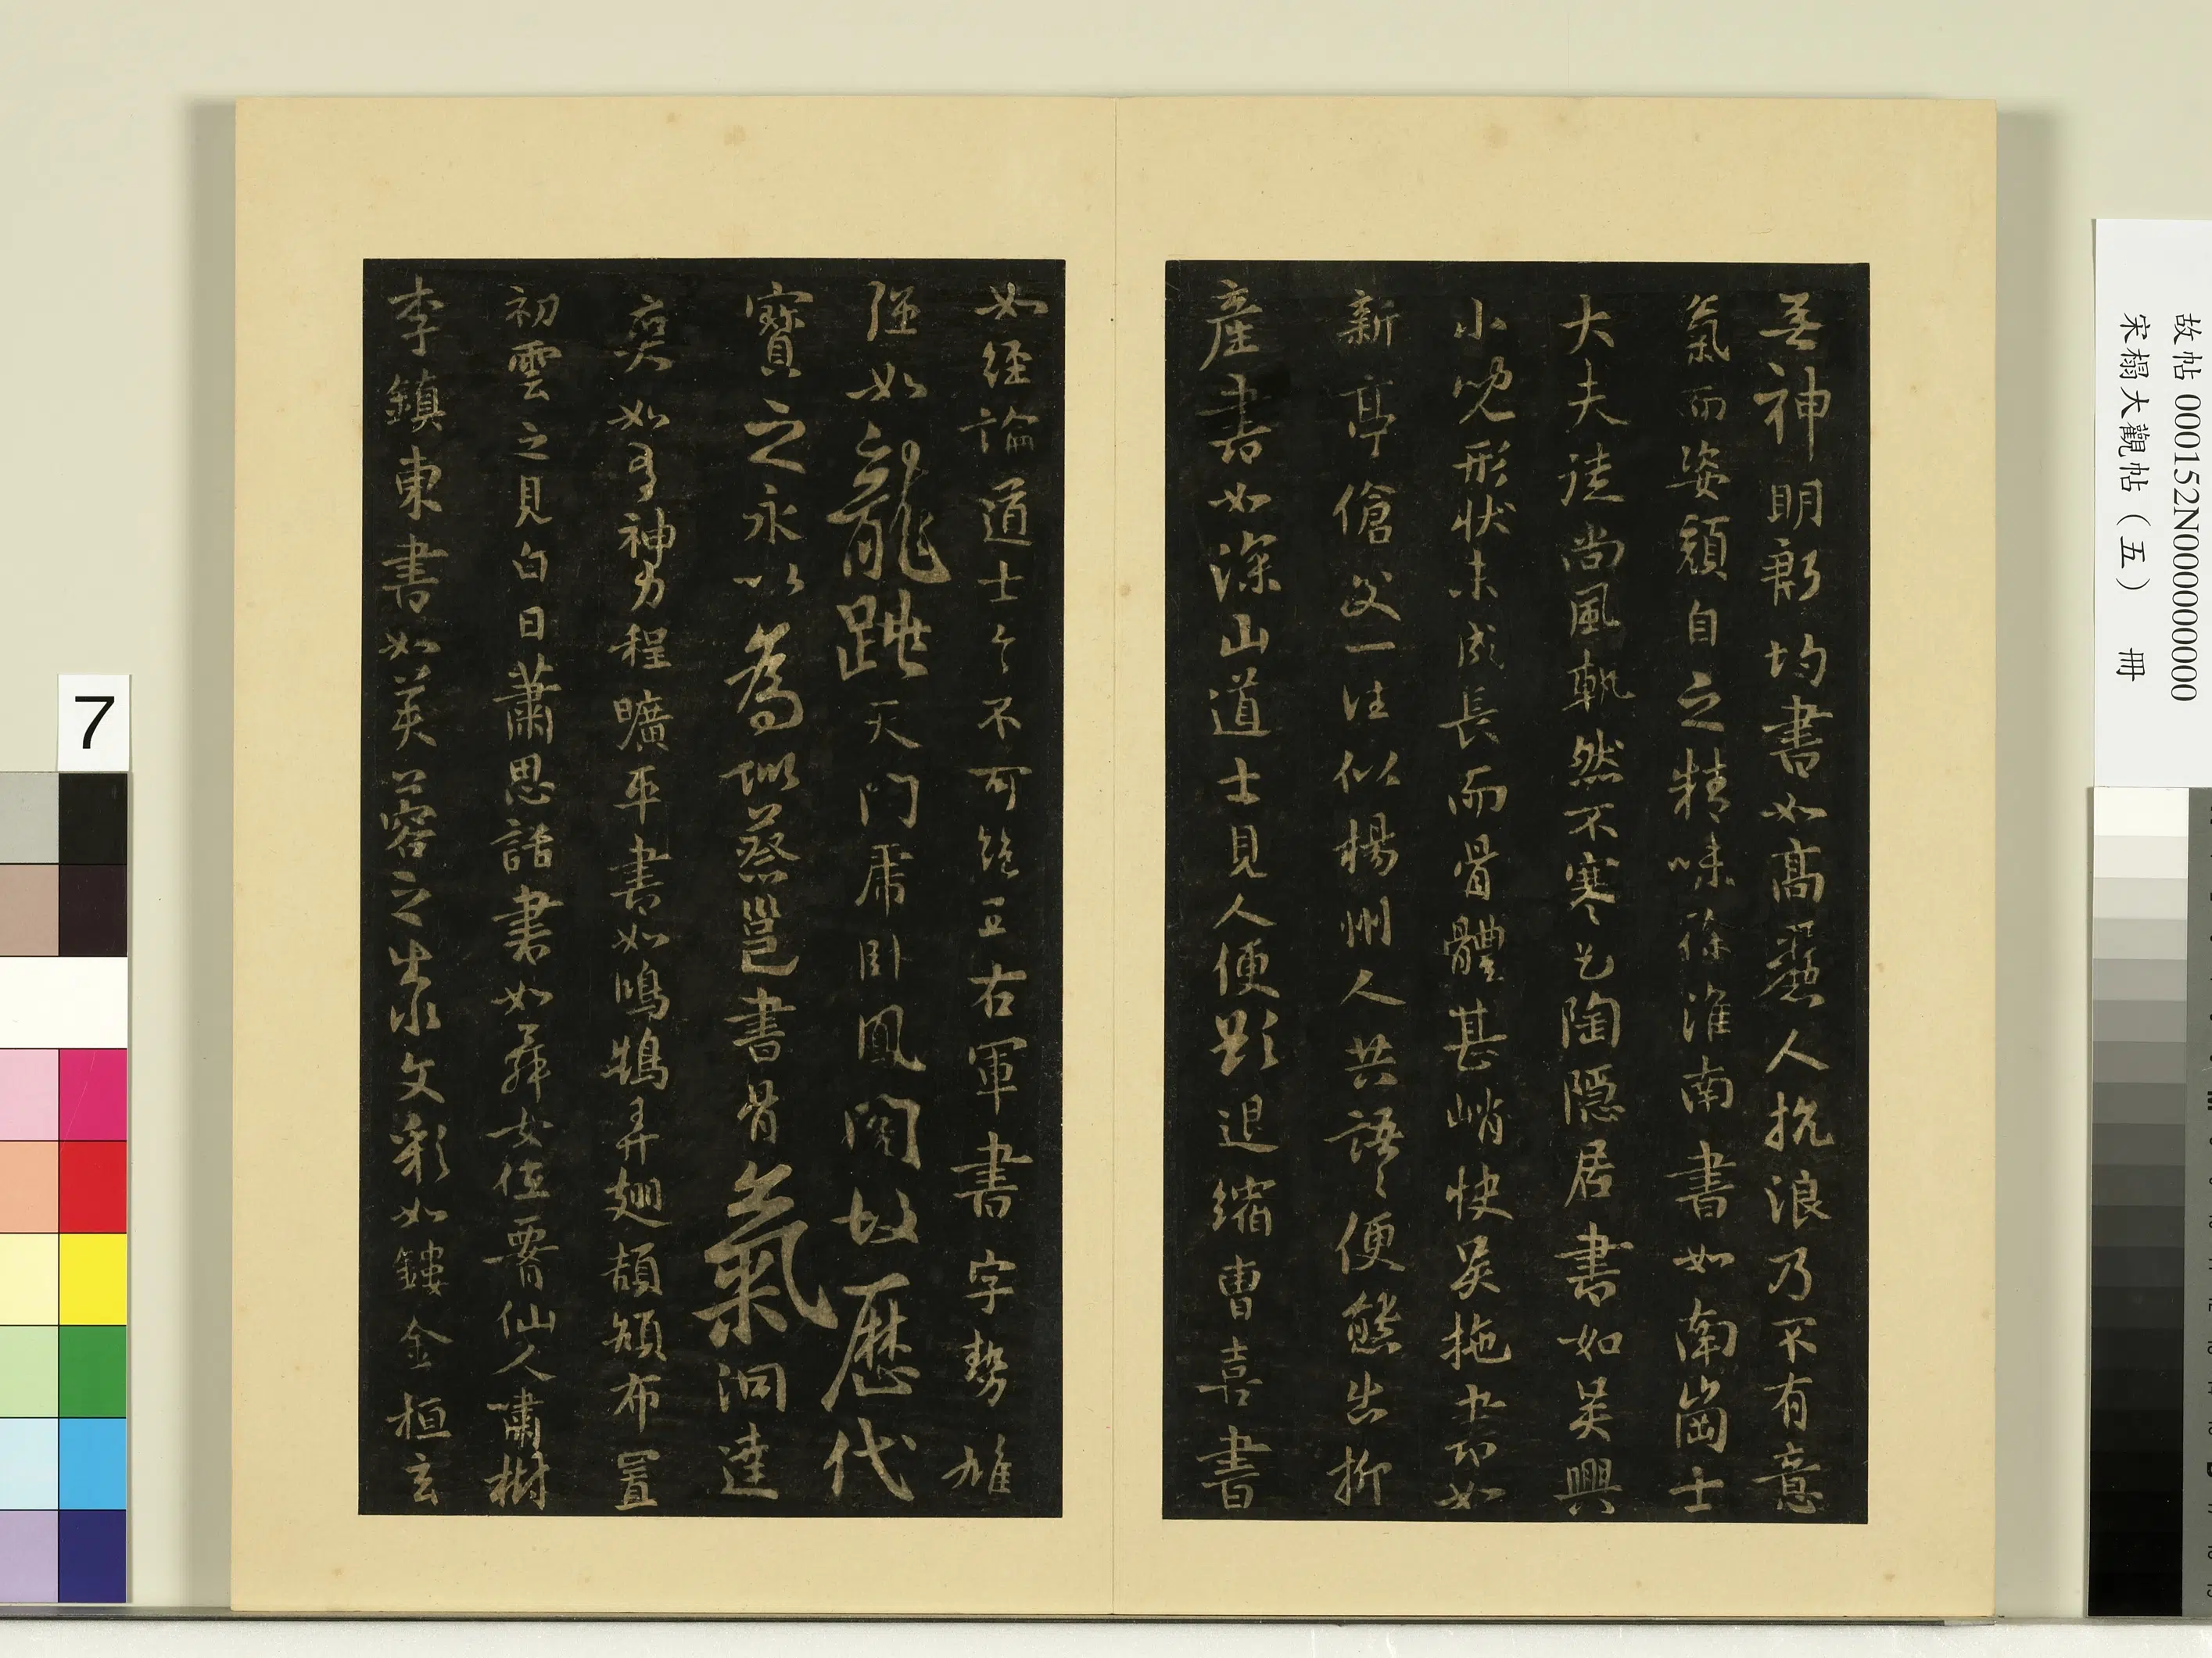 无神明殷均書如高麗人抗浪乃不有意
氣而姿顏自乏精味徐淮南書如南崗士
大夫徒尚風軌然不寒乞陶隱居書如吳興
小兒形狀未成長而骨體甚峭快吳拖書如
新亭傖父一往似楊州人共語〻便態出柳
產書如深山道士見人便欲退縮曹喜書
如經論道士言不可絕王右軍書字勢雄
強如龍跳天門虎臥鳳閣故歷代
寶之永以為訓蔡邕書骨氣洞達
爽爽如有神力程曠平書如鴻鵠弄翅頡頏布置
初雲之見白日蕭思話書如舞女低腰仙人嘯樹
李鎮東書如芙蓉之出水文彩如鏤金桓玄
故帖 000152N000000000
宋榻大觀帖（五） 冊
7